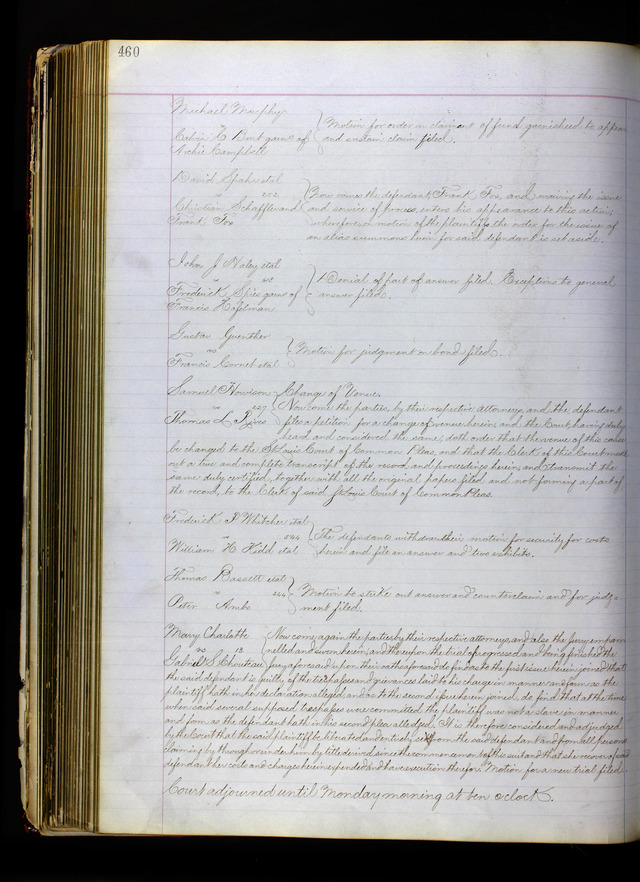 460
Michael Murphy
Motion for order on claimant of fund garnisheed to appear
Calvin H Burt garns of
and sustain claim filed.
Archie Campbell
David Spahr etal
vs 202
Now comes the defendant, Frank Fox, and waiving the issue
Christian Schaffler and
and service of process, enters his appearance to this action,
Frank Fox
wherefore on motion of the plaintiffs the order for the issuing of
an alias summons herein for said defendant is set aside.
John J Valey etal
vs
Denial of part of answer filed. Exceptions to general
Frederick Spies garns of
answer filed.
Francis Hafelman
Gustav Guenther
vs
Motion for judgment on bond filed.
Francis Cornet etal
Samuel Howison
Change of Venue.
vs 227
Now come the parties, by their respective attorneys, and the defendant
Thomas L
files a petition for a change of venue herein, and the Court, having duly
heard and considered the same, doth order that the venue of this cause
be changed to the St Louis Court of Common Pleas, and that the Clerk of this Court make
out a true and complete transcript of the record and proceedings herein, and transmit the
same duly certified, together with all the original papers filed and not forming a part of
the record, to the Clerk of said St Louis Court of Common Pleas.
Frederick P Whitcher etal
vs 244
The defendants withdraw their motion for security for costs
William H Kidd etal
herein and file an answer and two exhibits.
Thomas Bassett etal
vs 244
Motion to strike out answer and counterclaim and for judg-
Peter Ambs
ment filed.
Mary Charlotte
Now come again the parties by their respective attorneys, and also the jury empan-
vs 13
nelled and sworn herein, and thereupon the trial progressed and being finished the
Gabriel S. Chouteau
jury aforesaid upon their oaths foresaid do find as to the first issue herein joined that
the said defendant is guilty of the trespasses and grievances laid to his charge in manner and form as the
plaintiff hath in her declaration alleged and as to the second issue herein joined do find that at the time
when said several supposed trespasses were committed the plaintiff was not a slave in manner
and form as the defendant hath in his second plea alledged. It is therefore considered and adjudged
by the Court that the said plaintiff be liberated and entirely set from the said defendant and from all persons
claiming by through or under him by title derived since the commencement of this suit and that she recover of said
defendant her costs and charges herein expended and have execution therefor. Motion for a new trial filed.
Court adjourned until Monday morning at ten oclock.